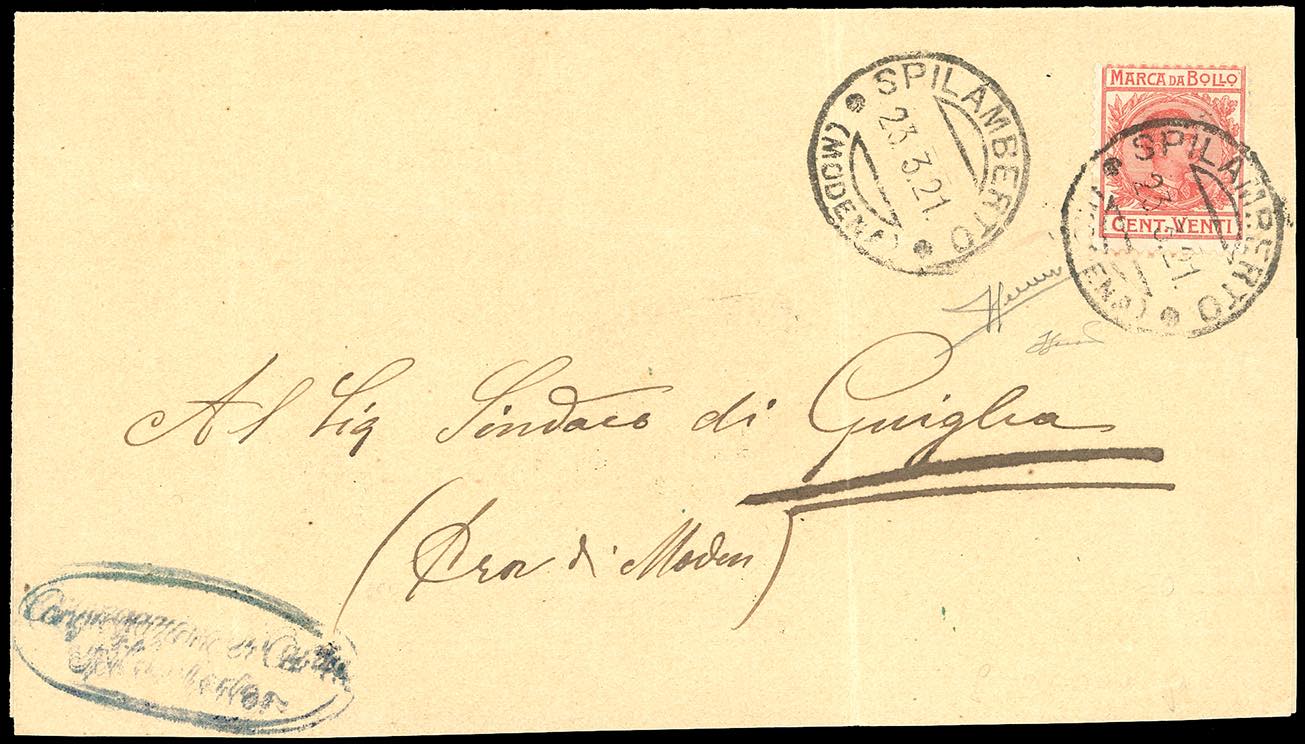 SPILAMBERTO
23.3.21.
(MODENA)
MARCA DA BOLLO
CENT. VENTI
SPILAMBERTO
23.3.21.
(MODENA)
Al Sig Sindaco di Guiglia
(Prov di Moden)
Congregazione di Carità
Spilamberto